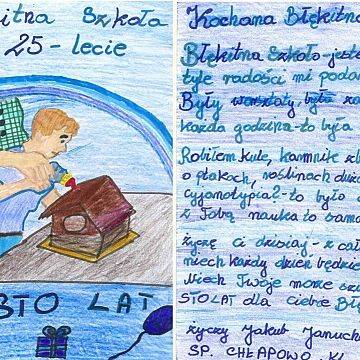 itna Szkoła
25-lecie
STO LAT
Kochana Błękitna
Błękitna Szkoło-jesteś
tyle radości mi poda
Były warsztaty, była
każda godzina-to była
Robiłem kule, karmnik
o ptakach, roślinach
cyjanotypia?-to było
z Tobą nauka to sama
życzę Ci dzisiaj-z cał
niech każdy dzień będzie
Niech Twoje morze
STO LAT dla Ciebie
życzy Jakub
SP. CHŁAPOWO KL